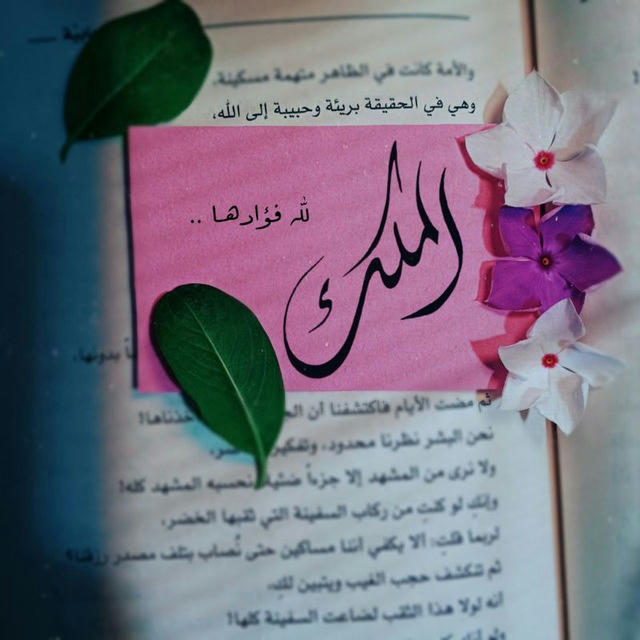 والأمة كانت في الظاهر متهمة مسكينة،
وهي في الحقيقة بريئة وحبيبة إلى الله،
الملك
لله فؤادها ..
بدونها.
ثم مضت الأيام فاكتشفنا أن
نحن البشر نظرنا محدود، وتفكيرنا
ولا نرى من المشهد إلا جزءاً ضئيلاً نحسبه المشهد كله!
وإنك لو كنت من ركاب السفينة التي ثقبها الخضر،
لربما قلت: ألا يكفي أننا مساكين حتى نُصاب بتلف مصدر رزقنا؟
ثم تنكشف حجب الغيب ويتبين لك،
أنه لولا هذا الثقب لضاعت السفينة كلها!